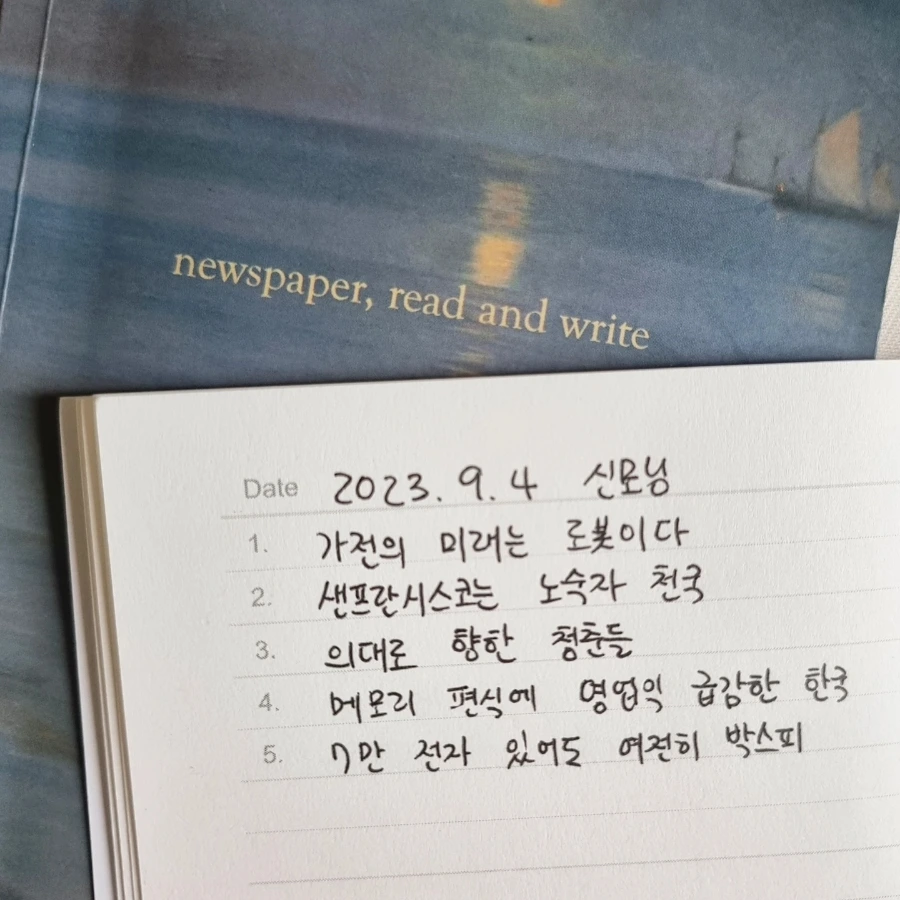 newspaper, read and write
Date 2023. 9. 4 신모닝
1. 가전의 미래는 로봇이다
2. 샌프란시스코는 노숙자 천국
3. 의대로 향한 청춘들
4. 메모리 편식에 영업익 급감한 한국
5. 7만 전자 있어도 여전히 박스피